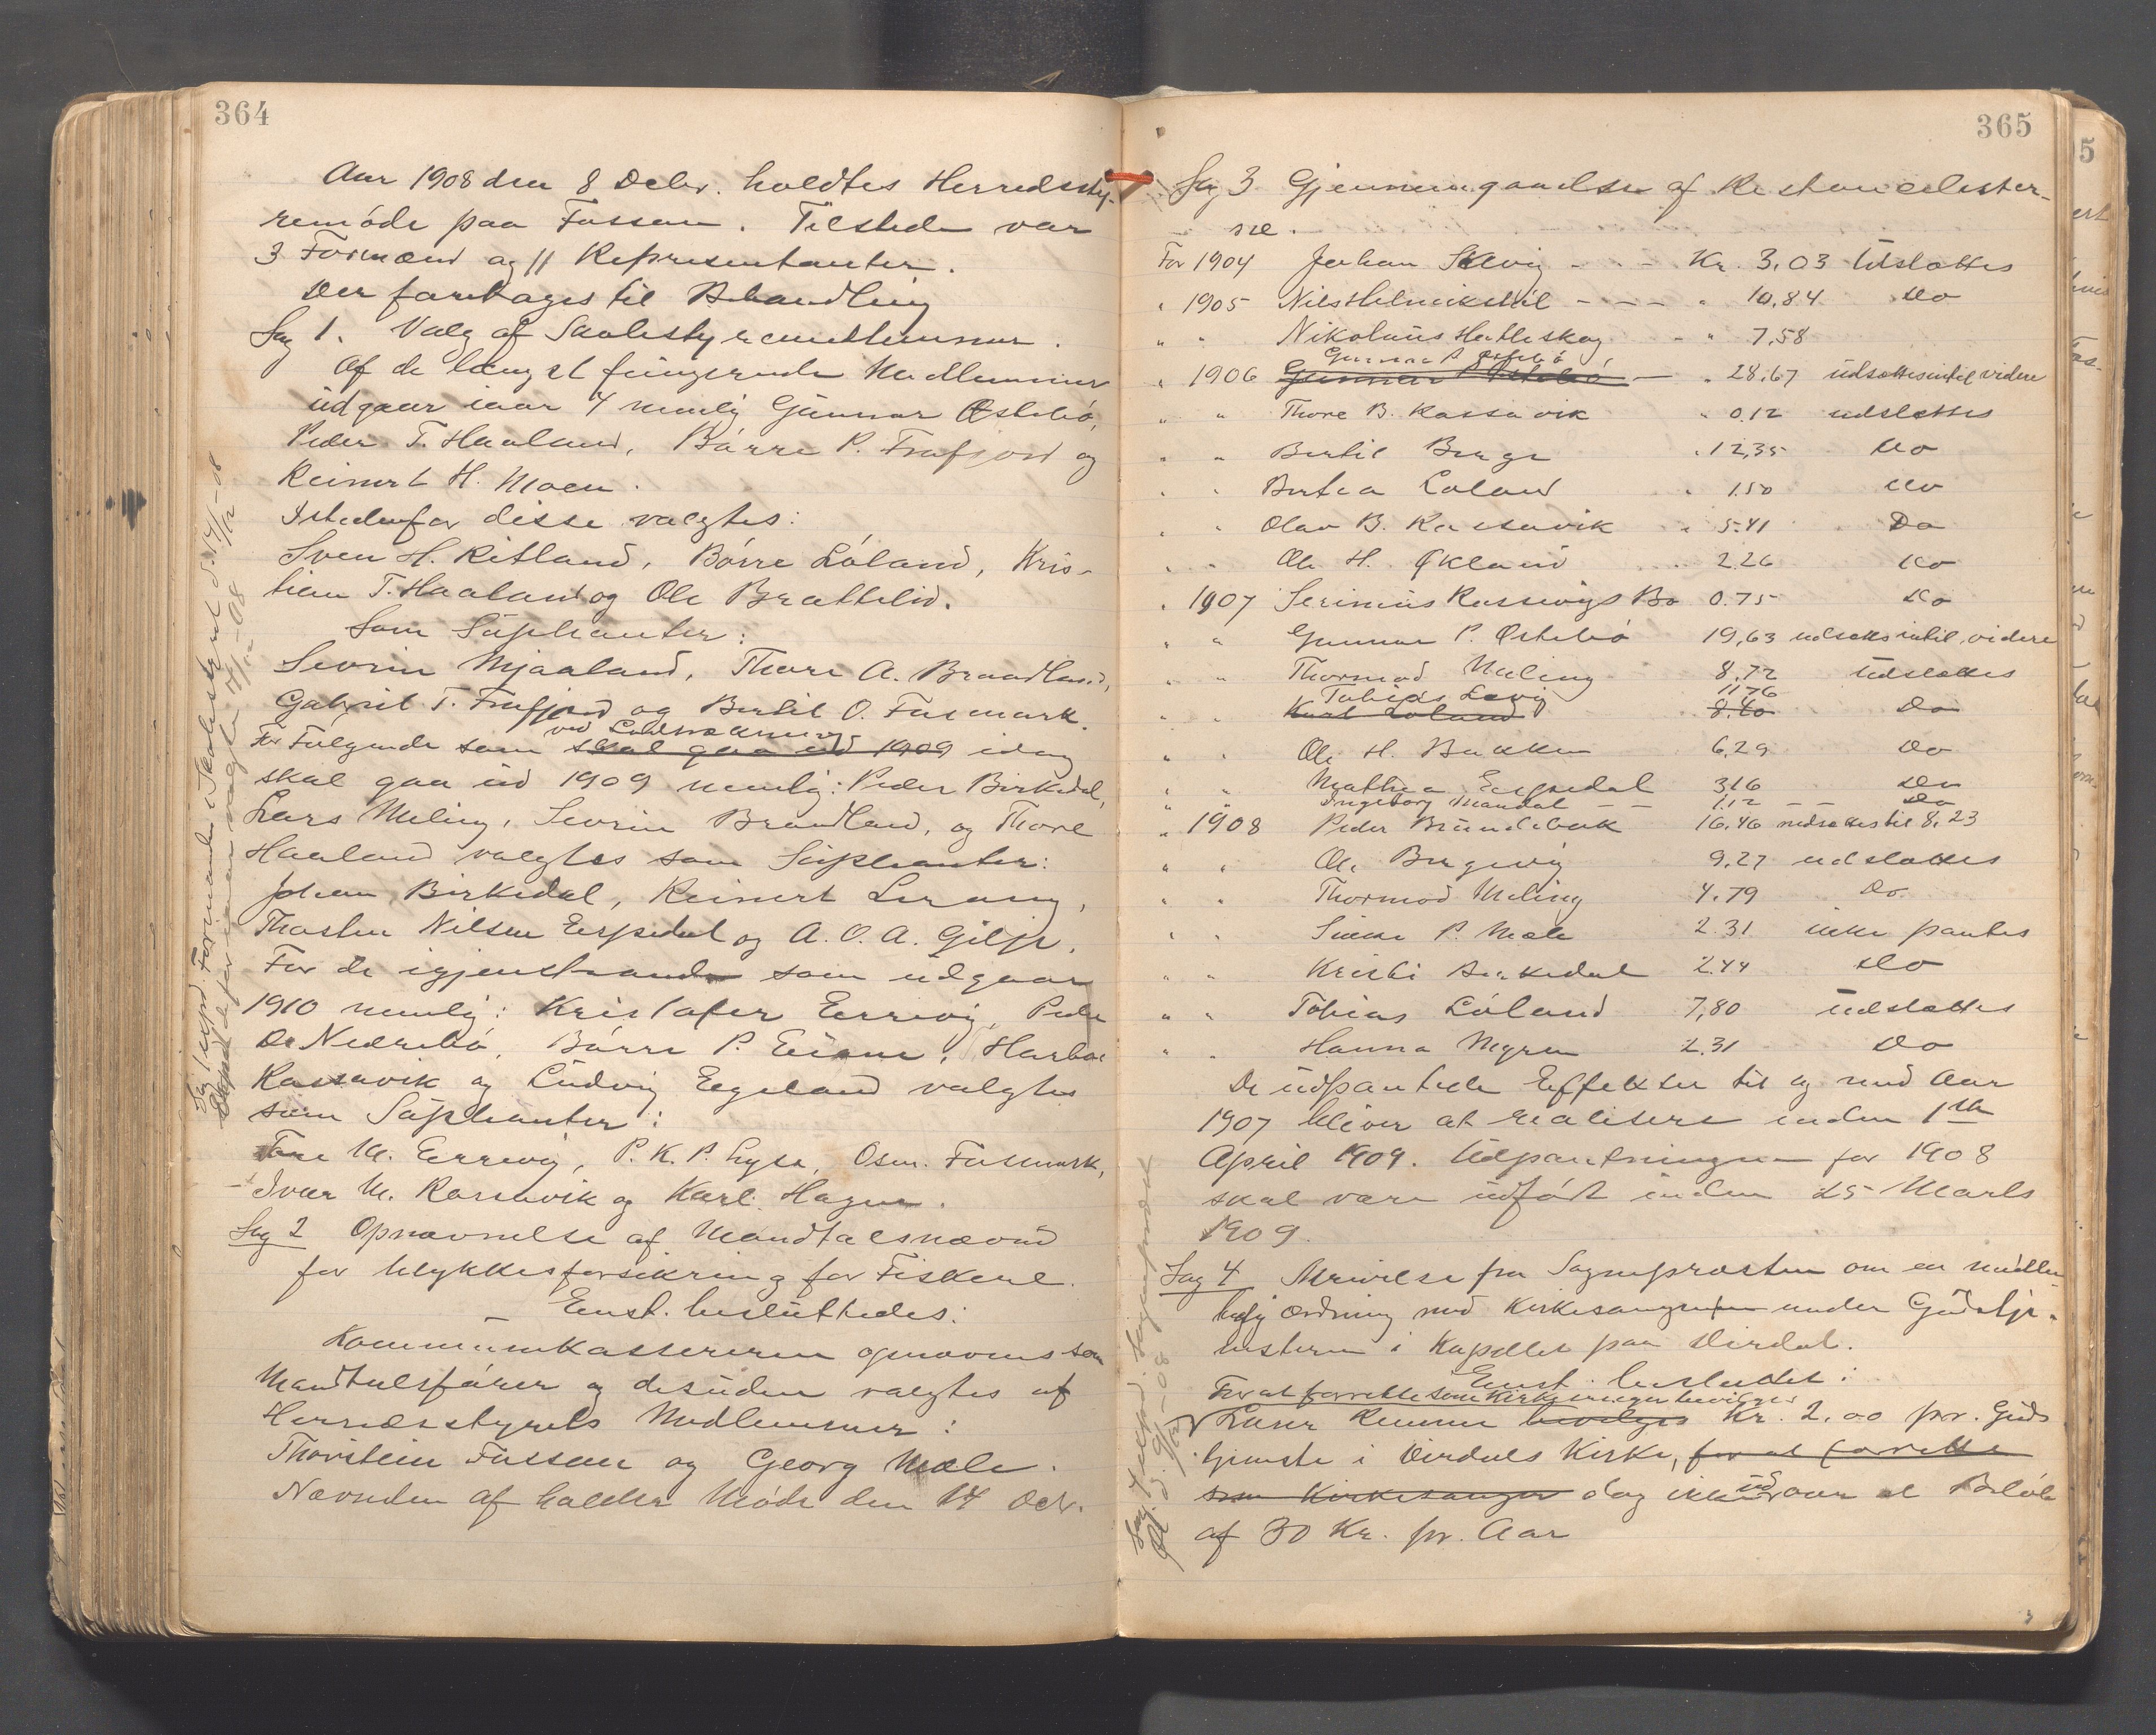 364
Aar 1908 den 8 Debr. holdtes Herredssty-
remöde paa Fossan. Tilstede var
3 Formænd og 11 Representanter.
Der foretages til Behandling
Sag 1. Valg af Skolestyremedlemmer.
Af de længst fungerende Medlemmer
udgaar iaar 4 nemlig Gunnar Østebö,
Peder T. Haaland, Börre P. Frafjord og
Reinert H. Moen.
Istedenfor disse valgtes:
Sven H. Ritland, Börre Löland, Kris-
tian T. Haaland og Ole Brattelid.
Som Suplianter:
Sevrin Mjaaland, Thore A. Brandland,
Gabriel T. Frafjord og Bertil O. Fosmark.
ved Lodtrækning
For Fölgende som skal gaa ud 1909 idag
skal gaa ud 1909 nemlig: Peder Birkedal,
Lars Meling, Sevrin Brandland, og Thore
Haaland valgtes som Suplianter:
Johan Birkedal, Reinert Lerang,
Thosten Nilsen Espedal og A. O. A. Gilje.
For de igjenstaande som udgaar
1910 nemlig: Kristofer Errevig, Peder
O. Nedrebö, Börre P. Eiane, Harboe
Rossavik og Ludvig Eegeland valgtes
som Suplianter:
Tore M. Errevig, P. K. P. Lyse, Osm. Fosmark,
Ivar M. Rossavik og Karl Hagen.
Sag 2 Opnævnelse af Mandtalsnævnd
for Ulykkesforsikring for Fiskere.
Enst. besluttedes:
Kommunekassereren opnævnes som
Mandtalsförer og desuden valgtes af
Herredsstyrets Medlemmer:
Thorstein Fossan og Georg Mæle.
Nævnden afholder Möde den 14 Debr.
365
Sag 3 Gjennemgaaelse af Restancelister-
ne.
For 1904 Johan Skevig - - - Kr. 3,03 Udslættes
" 1905 Nils Helmikstöl - - - " 10,84 Do
" " Nikolaus Hatleskog " 7,58
Gunnar P. Østebö
" 1906 Gunnar P. Østebö - " 28,67 udsættes indtil videre
" " Thore B. Rossavik " 0,12 udslættes
" " Bertil Berge " 12,35 Do
" " Bertea Löland " 1.50 Do
" " Olav B. Rossavik " 5.41 Do
" " Ole H. Økland " 2.26 Do
" 1907 Serinius Rossevigs Bo 0.75 Do
" " Gunnar P. Østebö 19,63 udsættes indtil videre
" " Thormod Meling 8,72 Udslættes
Tobias Levig 11.76
" " Knut Löland 8.40 Do
" " Ole H. Bakken 6,29 Do
" " Mathea Espedal 3,16 Do
" Ingeborg Mandal - - 1,12 - - Do
" 1908 Peder Brundebak 16,46 nedsættes til 8,23
" " Ole Bergevig 9,27 udslættes
" " Thormod Meling 4.79 Do
" " Simon P. Mæle 2.31 ikke pantes
" " Kristi Birkedal 2.44 Do
" " Tobias Löland 7,80 Udslættes
" " Hanna Myren 2.31 Do
De udpantede Effekter til og med Aar
1907 bliver at realisere inden 1ste
April 1909. Udpantningen for 1908
skal være udfört inden 25 Marts
1909.
Sag 4 Skrivelse fra Sognepræsten om en midler-
tidig Ordning med Kirkesangeren under Gudstje-
nesterne i Kapellet paa Dirdal.
Enst. besluttet:
For at forrette som Kirkesanger bevilges
Lærer Kr. 2,00 pr. Guds
tjeneste i Dirdals Kirke, for at forrette
som Kirkesanger dog ikke udover et Belöb
af 30 Kr. pr. Aar